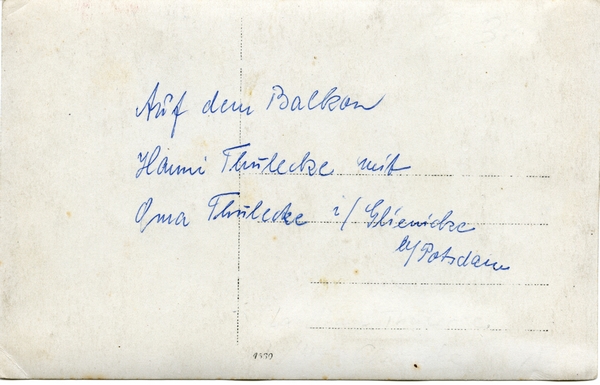 Auf dem Balkon
Hanni Thulecke mit
Oma Thulecke i/ Glienicke
b/Potsdam
1330